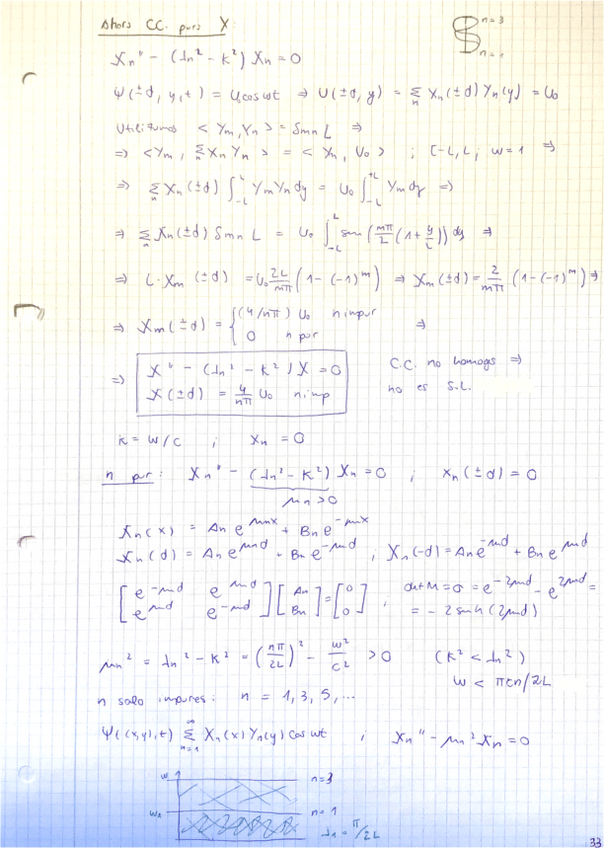 Ahora CC. para X:
n=3
n=1
Xn'' - (λn² - k²) Xn = 0
Ψ(±d, y, t) = U₀ cos wt ⇒ U(±d, y) = Σn Xn(±d) Yn(y) = U₀
Utilizamos < Ym, Yn > = δmn L ⇒
⇒ <Ym, Σn Xn Yn > = < Yn, U₀ > ; [-L, L] ; w=1 ⇒
⇒ Σn Xn(±d) ∫_{-L}^{L} Ym Yn dy = U₀ ∫_{-L}^{+L} Ym dy ⇒
⇒ Σn Xn(±d) δmn L = U₀ ∫_{-L}^{L} sen (mπ/2 (1 + y/L)) dy ⇒
⇒ L·Xm (±d) = U₀ 2L/mπ (1 - (-1)^m) ⇒ Xm(±d) = 2/mπ (1 - (-1)^m) ⇒
⇒ Xm(±d) = { (4/nπ) U₀ n impar
0 n par ⇒
⇒ X'' - (λn² - k²) X = 0
X(±d) = 4/nπ U₀ n imp
C.C. no homogs ⇒
no es S.L.
k = w/c ; Xn = 0
n par: Xn'' - (λn² - k²) Xn = 0 ; Xn(±d) = 0
μn > 0
Xn(x) = An e^{μnx} + Bn e^{-μnx}
Xn(d) = An e^{μnd} + Bn e^{-μnd} ; Xn(-d) = An e^{-μnd} + Bn e^{μnd}
[e^{-μnd} e^{μnd}] [An] = [0] ; det M = 0 = e^{-2μnd} - e^{2μnd} =
[e^{μnd} e^{-μnd}] [Bn] [0] = -2 senh (2μnd)
μn² = λn² - k² = (nπ/2L)² - w²/c² > 0 (k² < λn²)
w < πcn/2L
n solo impares: n = 1, 3, 5, ...
Ψ((x,y),t) Σ_{n=1}^{∞} Xn(x) Yn(y) cos wt ; Xn'' - μn² Xn = 0
w n=3
w₁ n=1
λ₁ = π/2L
33